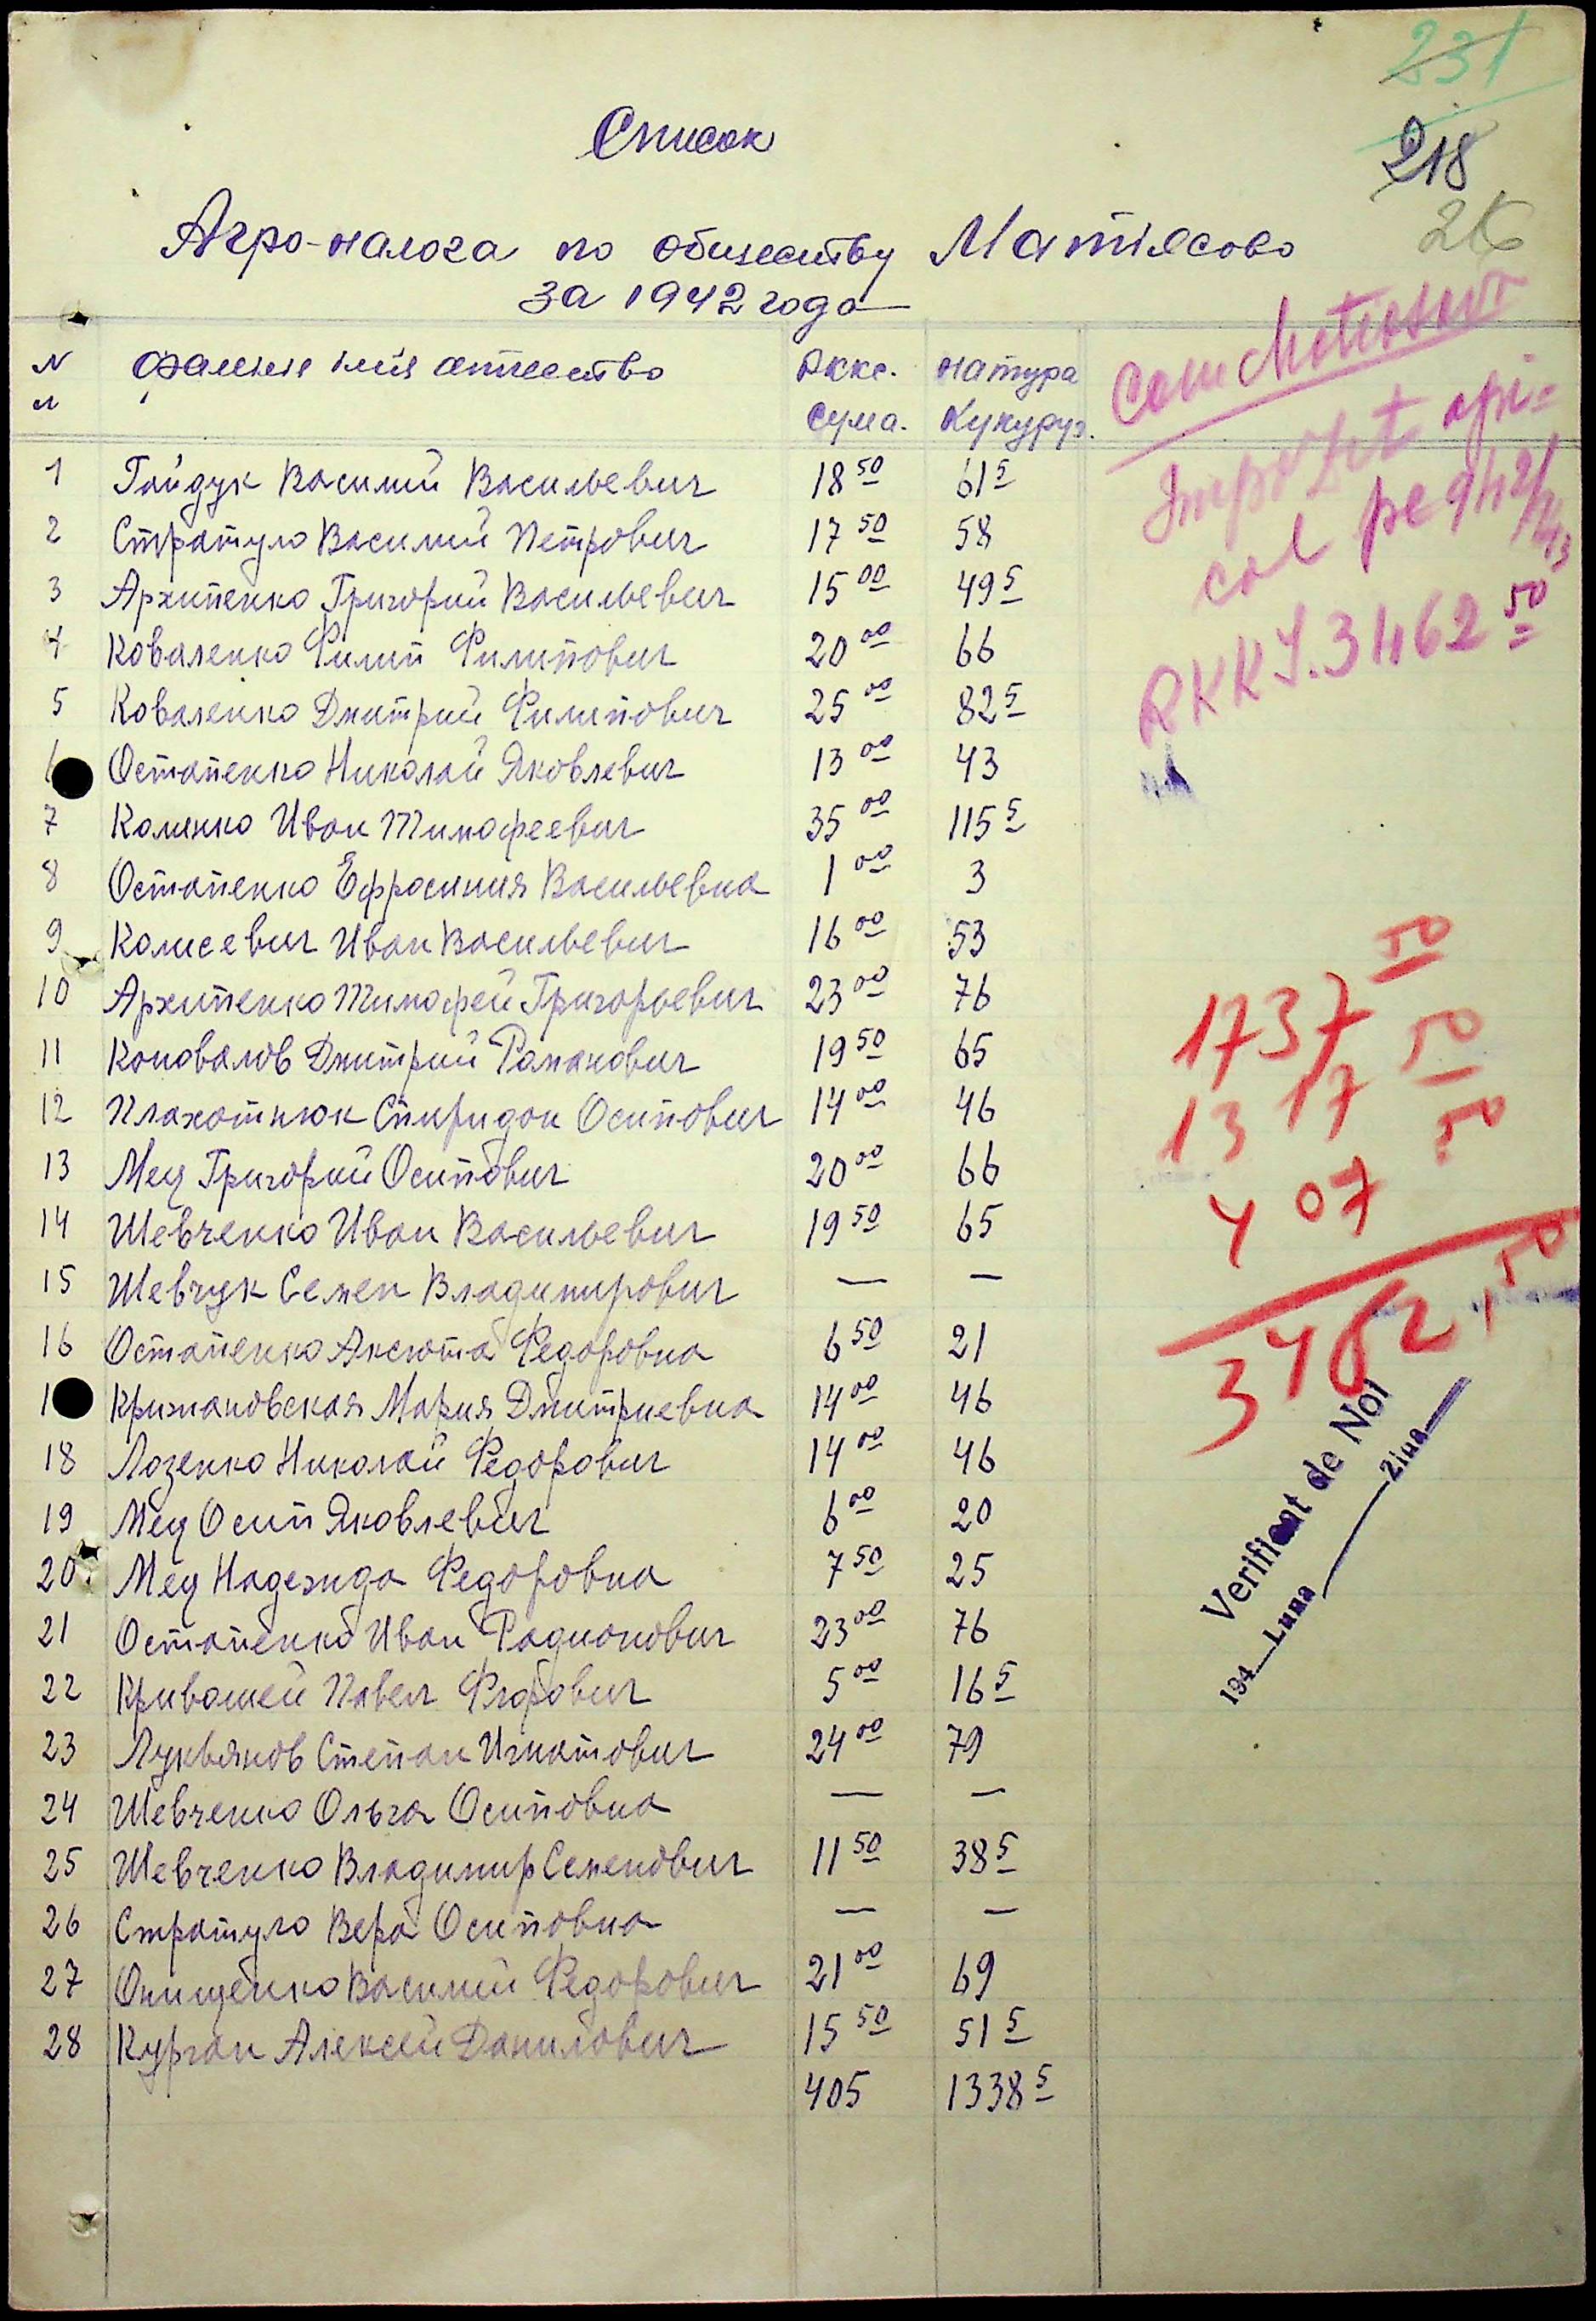 231
218
Список
Агро-налога по обществу Матіясово
за 1942 года
N фамилие імя отчество Rккс. натура
п сума. Кукуруз.
1 Гайдук Василий Васильевич 18 50 61 5
2 Стратуло Василий Петрович 17 50 58
3 Архипенко Григорий Васильевич 15 00 49 5
4 Коваленко Филип Филипович 20 00 66
5 Коваленко Дмитрий Филипович 25 00 82 5
6 Остапенко Николай Яковлевич 13 00 43
7 Коленко Иван Тимофеевич 35 00 115 5
8 Остапенко Ефросиния Васильевна 1 00 3
9 Колисевич Иван Васильевич 16 00 53
10 Архипенко Тимофей Григорьевич 23 00 76
11 Коновалов Дмитрий Романович 19 50 65
12 Плахотнюк Спиридон Осипович 14 00 46
13 Мец Григорий Осипович 20 00 66
14 Шевченко Иван Васильевич 19 50 65
15 Шевчук Семен Владимирович — —
16 Остапенко Аксюта Федоровна 6 50 21
1 Крижановская Мария Дмитриевна 14 00 46
18 Лозенко Николай Федорович 14 00 46
19 Мец Осип Яковлевич 6 00 20
20 Мец Надежда Федоровна 7 50 25
21 Остапенко Иван Радионович 23 00 76
22 Кривошей Павел Фёдорович 5 00 16 5
23 Лукьянов Степан Игнатович 24 00 79
24 Шевченко Ольга Осиповна — —
25 Шевченко Владимир Семенович 11 50 38 5
26 Стратуло Вера Осиповна — —
27 Онищенко Василий Федорович 21 00 69
28 Курган Алексей Данилович 15 50 51 5
405 1338 5
Com Matiasovi
Impozit agri=
col pe 942/943
RKKS. 3462 50
1737 50
1317 50
407 50
3462,50
Verificat de Noi
194 Luna Ziua